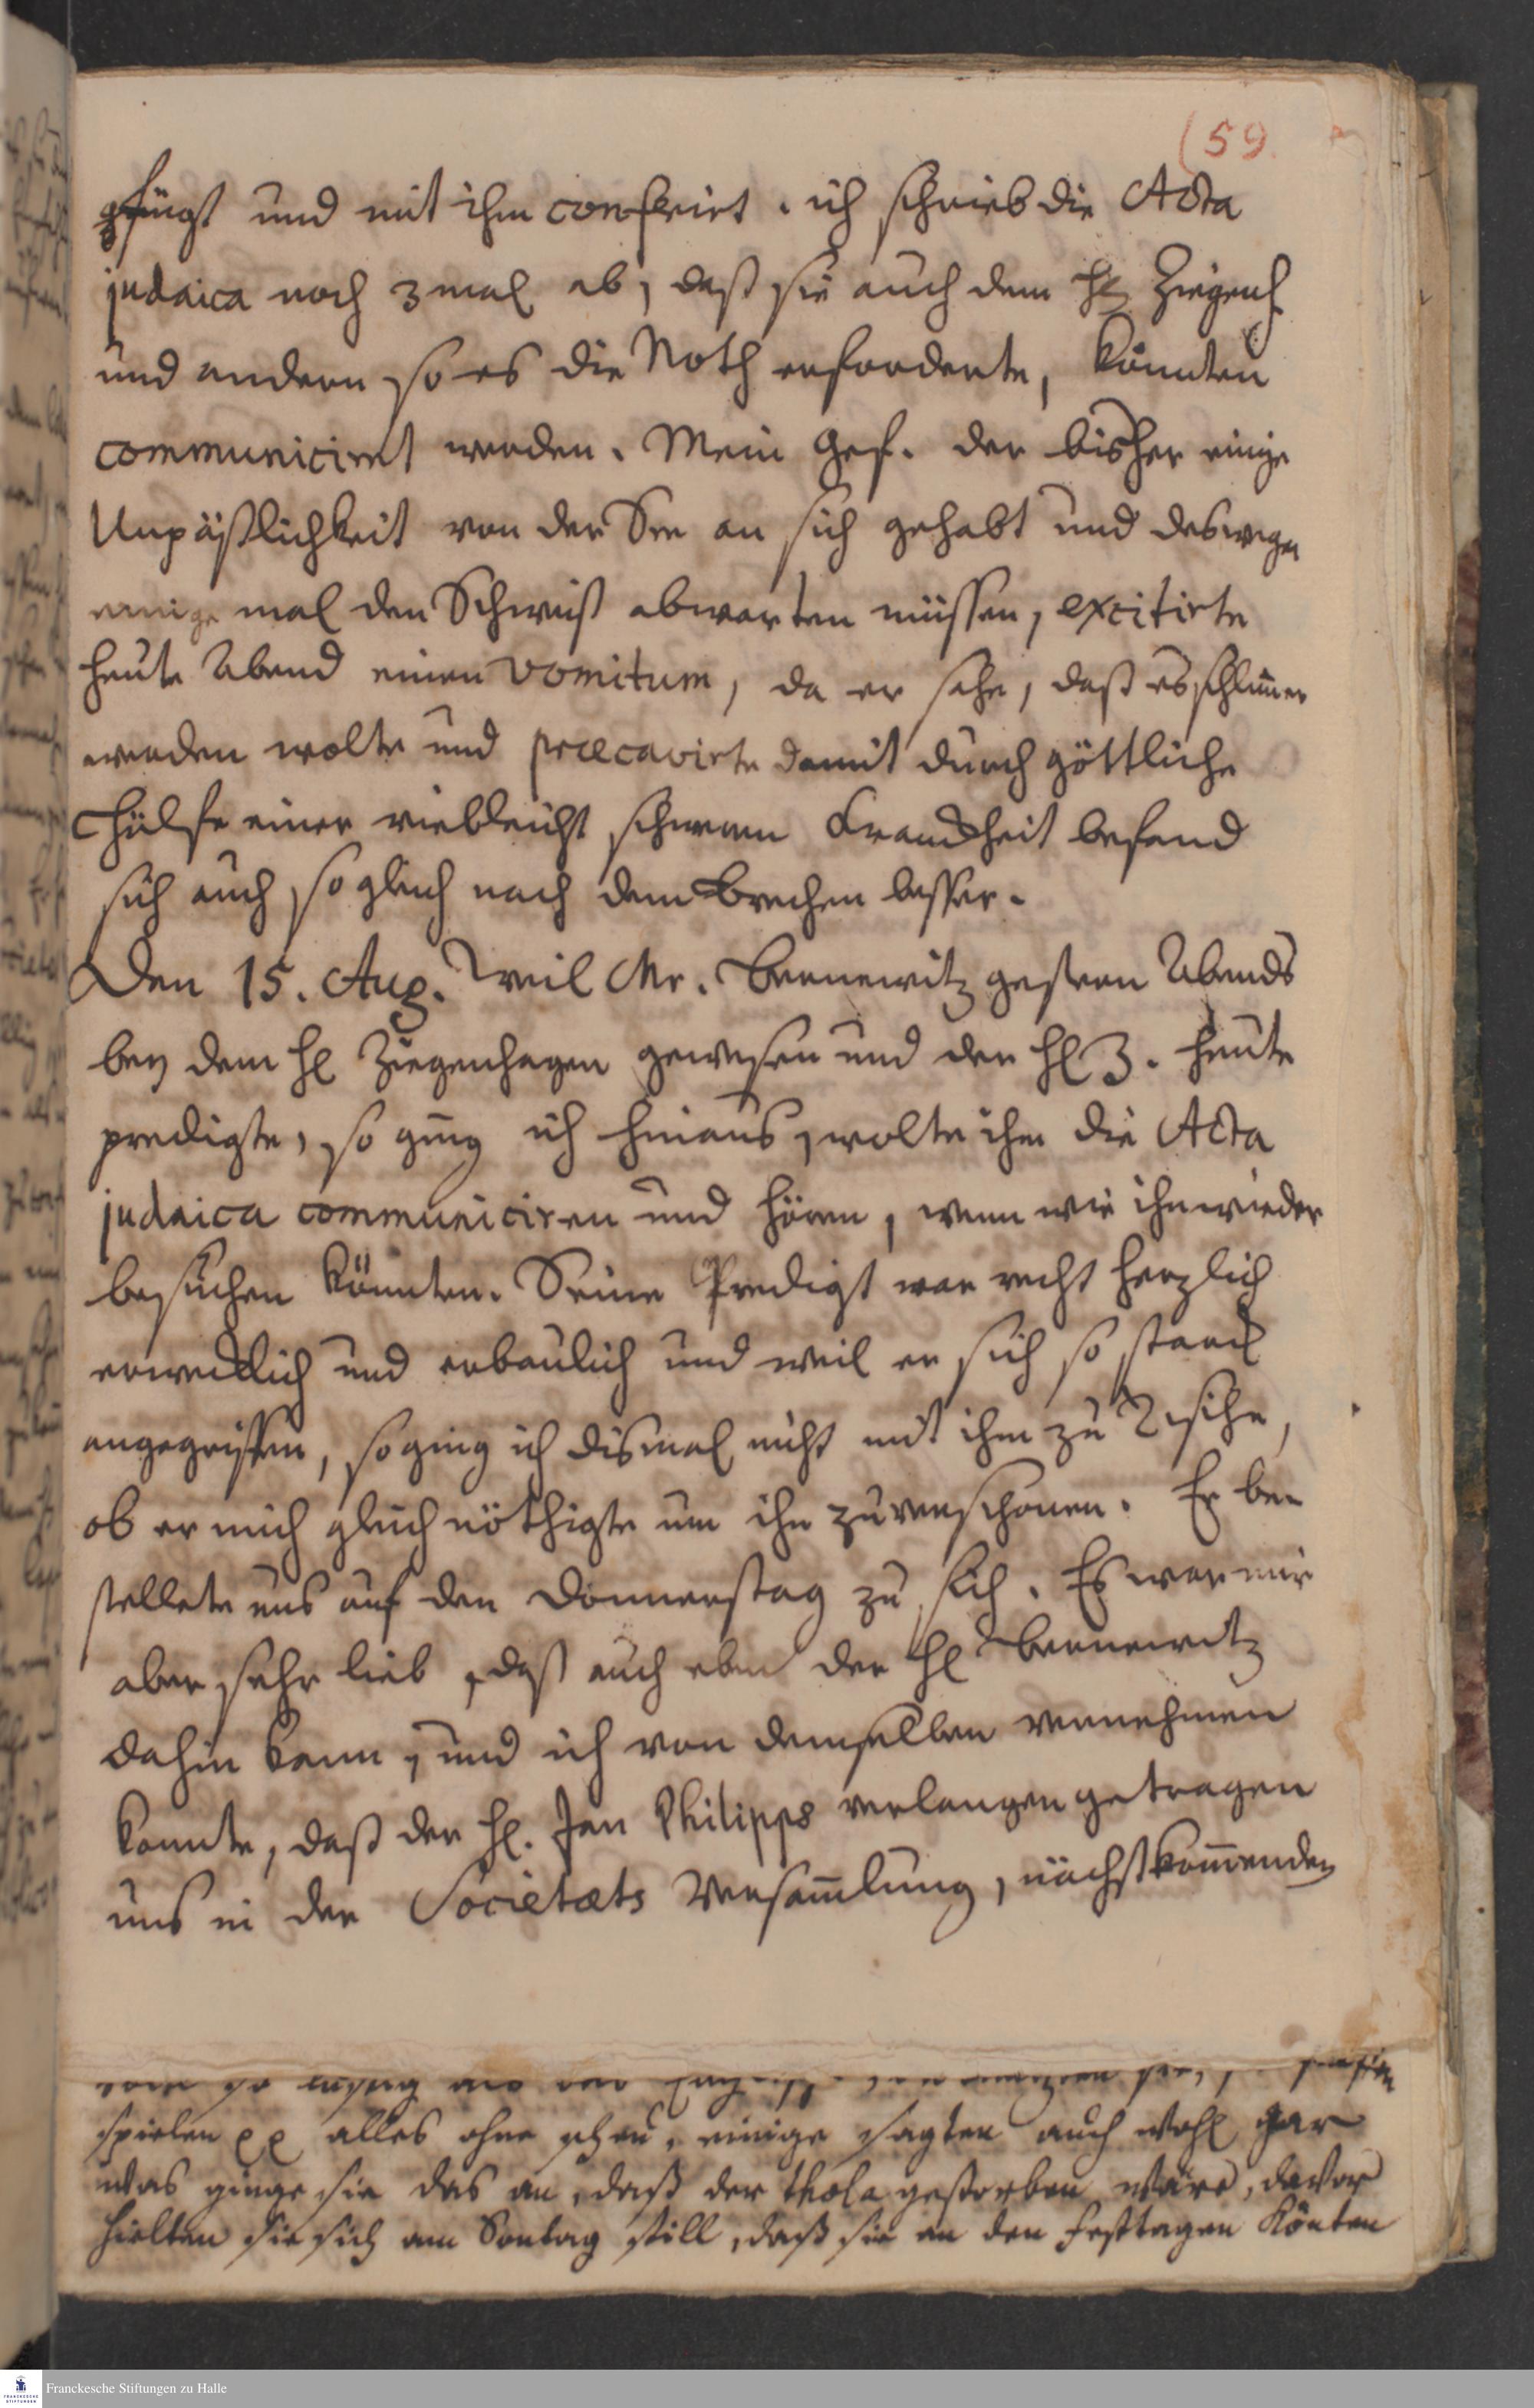 (59.
gefügt und mit ihm conferirt. ich schrieb die Acta
judaica noch 3 mal ab, daß sie auch dem H. Ziegenh.
und andern so es die Noth erforderte, könnten
communicirt werden. Mein Gef. der bisher einige
Unpäßlichkeit von der See an sich gehabt und deswegen
einige mal den Schweiß abwarten müssen, excitirte
heute Abend einen vomitum, da er sahe, daß es schlim̄er
werden wolte und præcavirte damit durch göttliche
Hülfe einer vielleicht schweren Kranckheit befand
sich auch so gleich nach dem Brechen besser.
Den 15. Aug. Weil Mr. Bennewitz gestern Abends
bey dem H. Ziegenhagen gewesen und der H. Z. heute
predigte, so ging ich hinaus, wolte ihm die Acta
judaica communiciren und hören, wenn wir ihn wieder
besuchen könnten. Seine Predigt war recht herzlich
erwecklich und erbaulich und weil er sich so starck
angegriffen, so ging ich dismal nicht mit ihm zu Tische,
ob er mich gleich nöthigte um ihn zu verschonen. Er be-
stellete uns auf den Donnerstag zu sich. Es war mir
aber sehr lieb, daß auch eben der H. Bennewitz
dahin kam, und ich von demselben vernehmen
konnte, daß der H. Jan Philipps verlangen getragen
uns in der Societæts Versam̄lung, nächstkom̄enden
spielen alles ohne scheu, einige sagten auch wohl gar
was ginge sie das an, daß der gestorben wäre, davor
hielten sie sich am Sontag still, daß sie an den Festtagen könten
Franckesche Stiftungen zu Halle